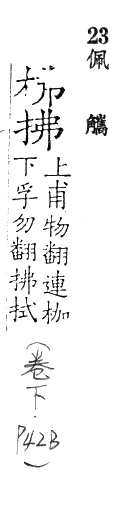 23 佩觿
柫拂
上甫物翻連枷
下孚勿翻拂拭
(卷下. P42B)